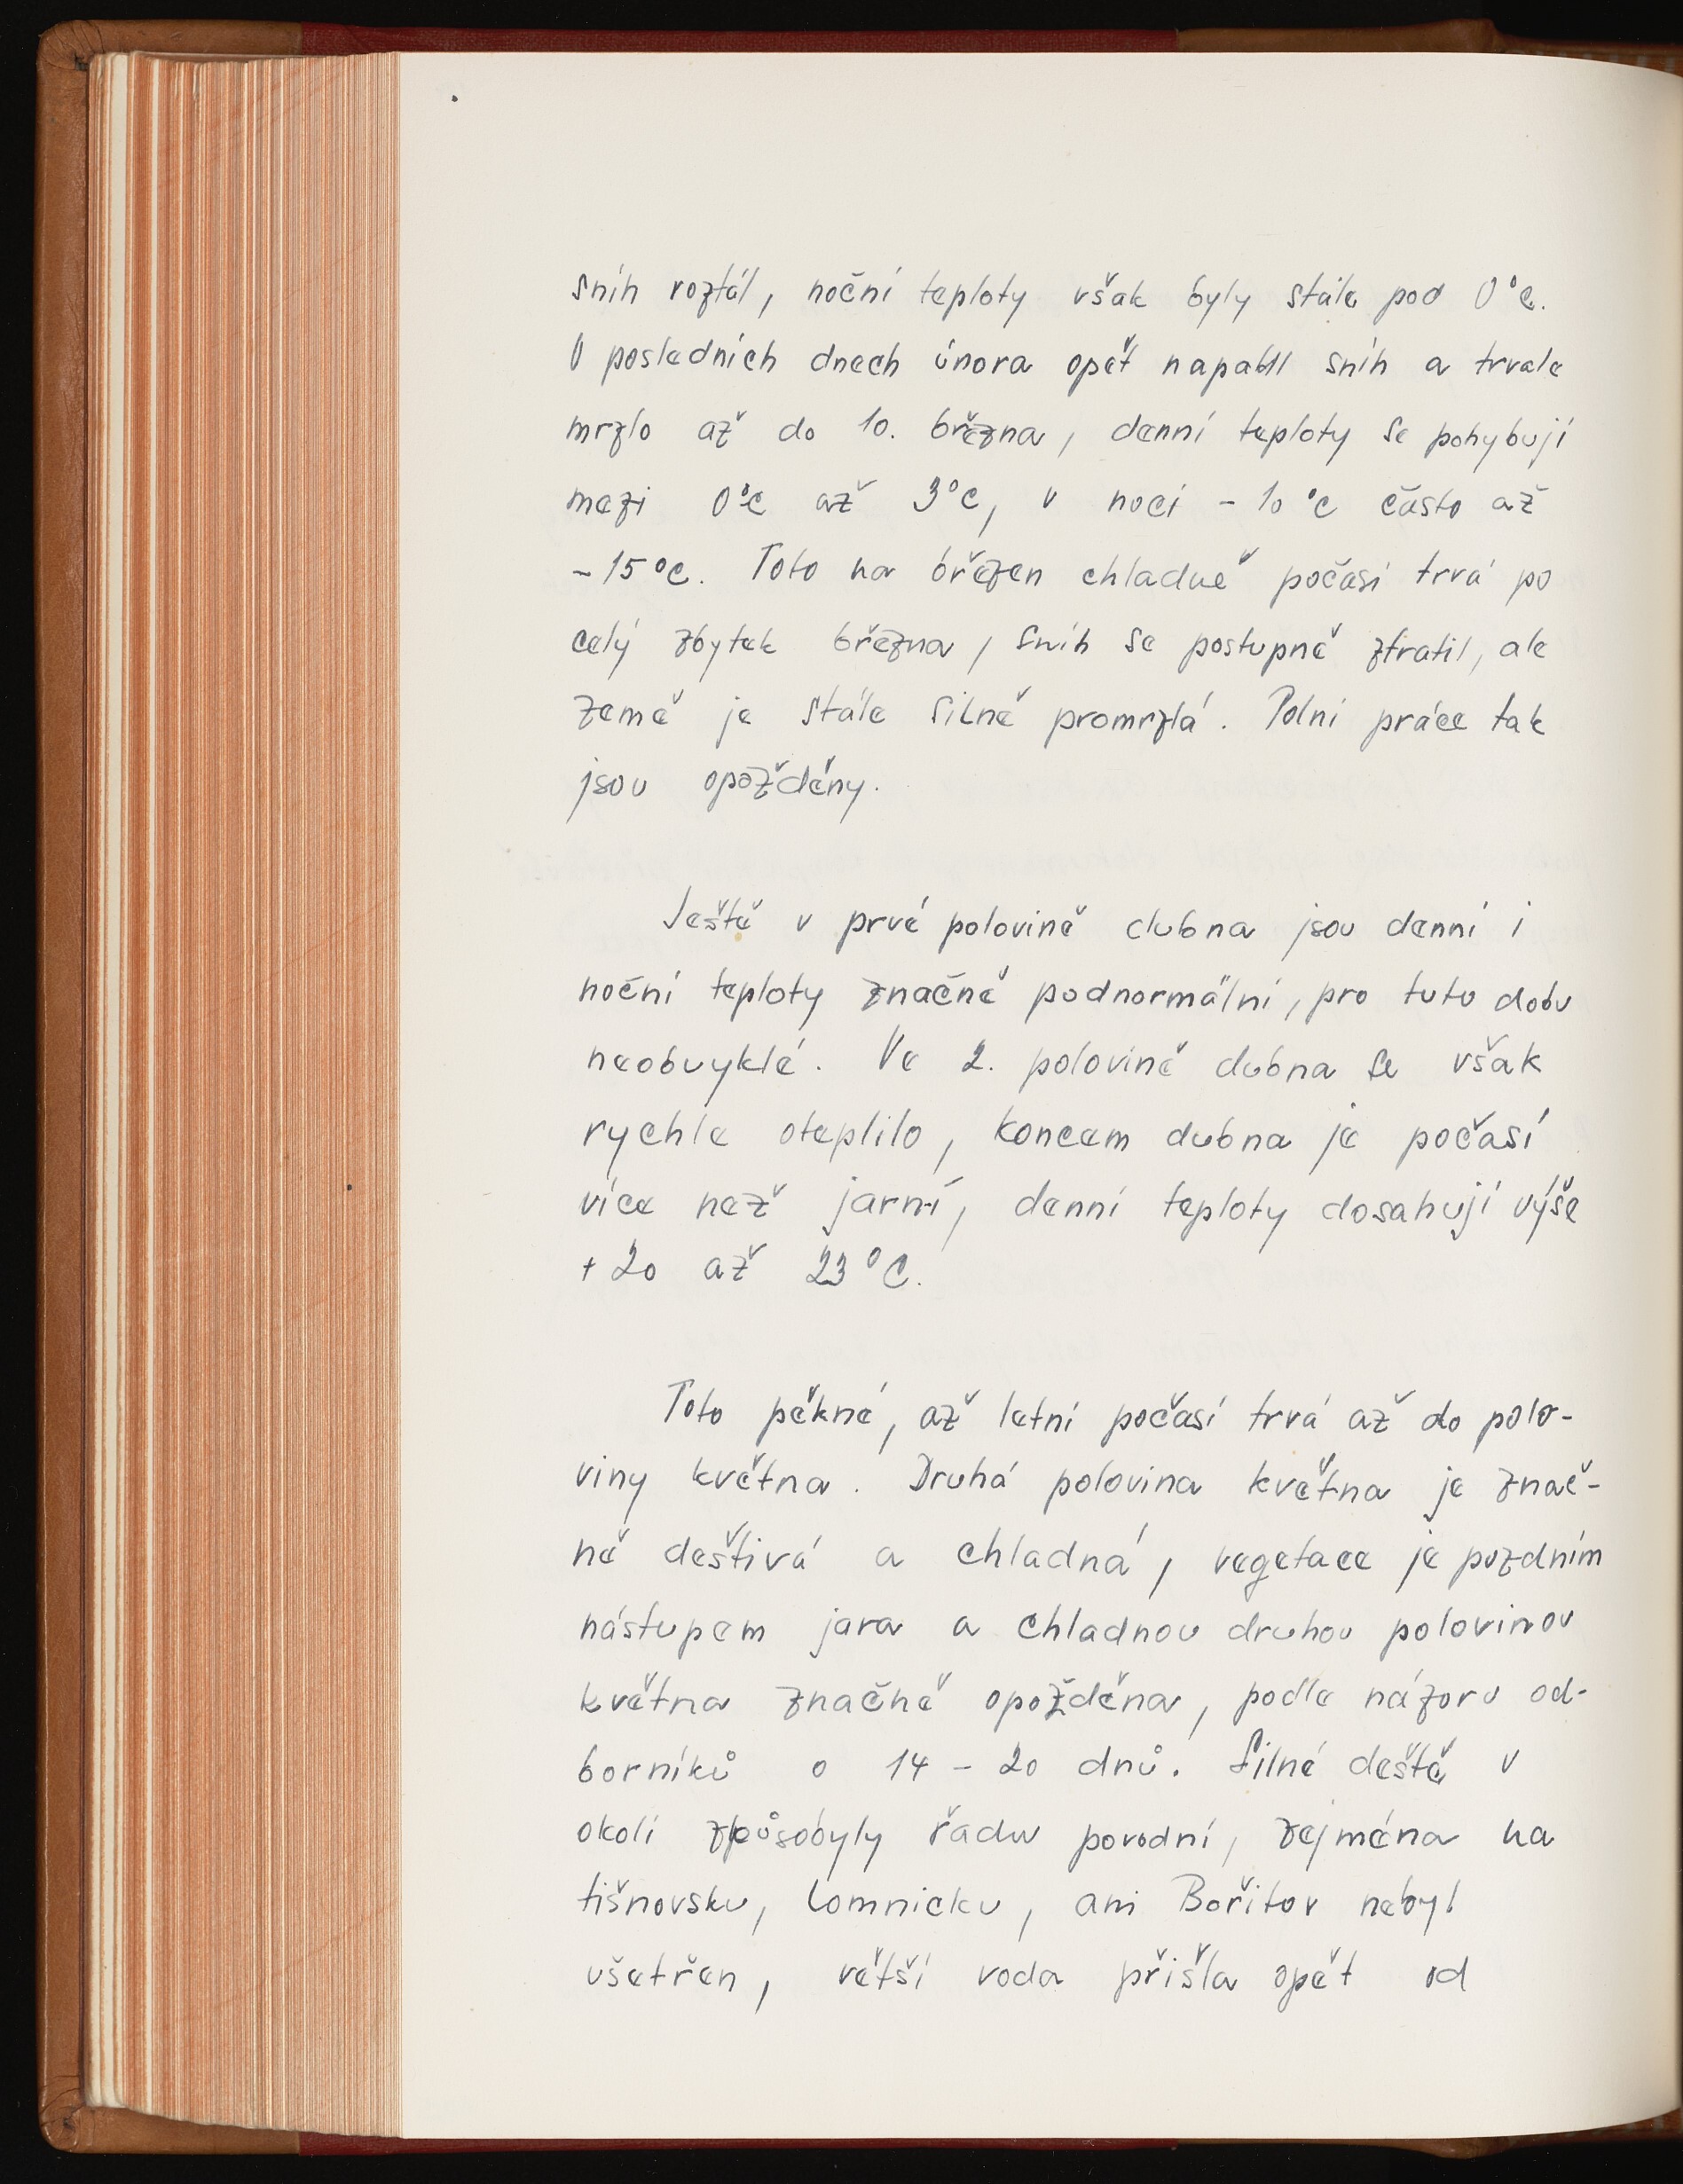 sníh roztál, noční teploty však byly stále pod 0°C.
V posledních dnech února opět napadl sníh a trvale
mrzlo až do 10. března, denní teploty se pohybují
mezi 0°C až 3°C, v noci -10°C často až
-15°C. Toto na březen chladné počasí trvá po
celý zbytek března, sníh se postupně ztratil, ale
země je stále silně promrzlá. Polní práce tak
jsou opožděny.
Ještě v prvé polovině dubna jsou denní i
noční teploty značně podnormální, pro tuto dobu
neobvyklé. Ve 2. polovině dubna se však
rychle oteplilo, koncem dubna je počasí
více než jarní, denní teploty dosahují výše
+20 až 23°C.
Toto pěkné, až letní počasí trvá až do polo-
viny května. Druhá polovina května je znač-
ně deštivá a chladná, vegetace je pozdním
nástupem jara a chladnou druhou polovinou
května značně opožděna, podle názoru od-
borníků o 14 - 20 dnů. Silné deště v
okolí způsobyly řadu povodní, zejména na
tišnovsku, Lomnicku, ani Bořitov nebyl
ušetřen, větší voda přišla opět od